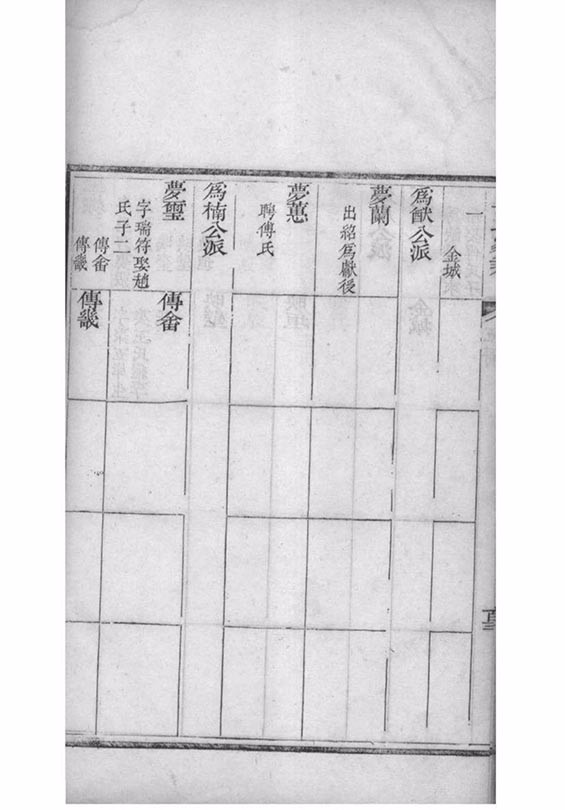 一
金城
爲猷公派
夢蘭
出紹爲獻後
夢蕙
聘傅氏
爲楠公派
夢璽
字瑞符娶趙
氏子二
傳畬
傳畿
傳畬
傳畿